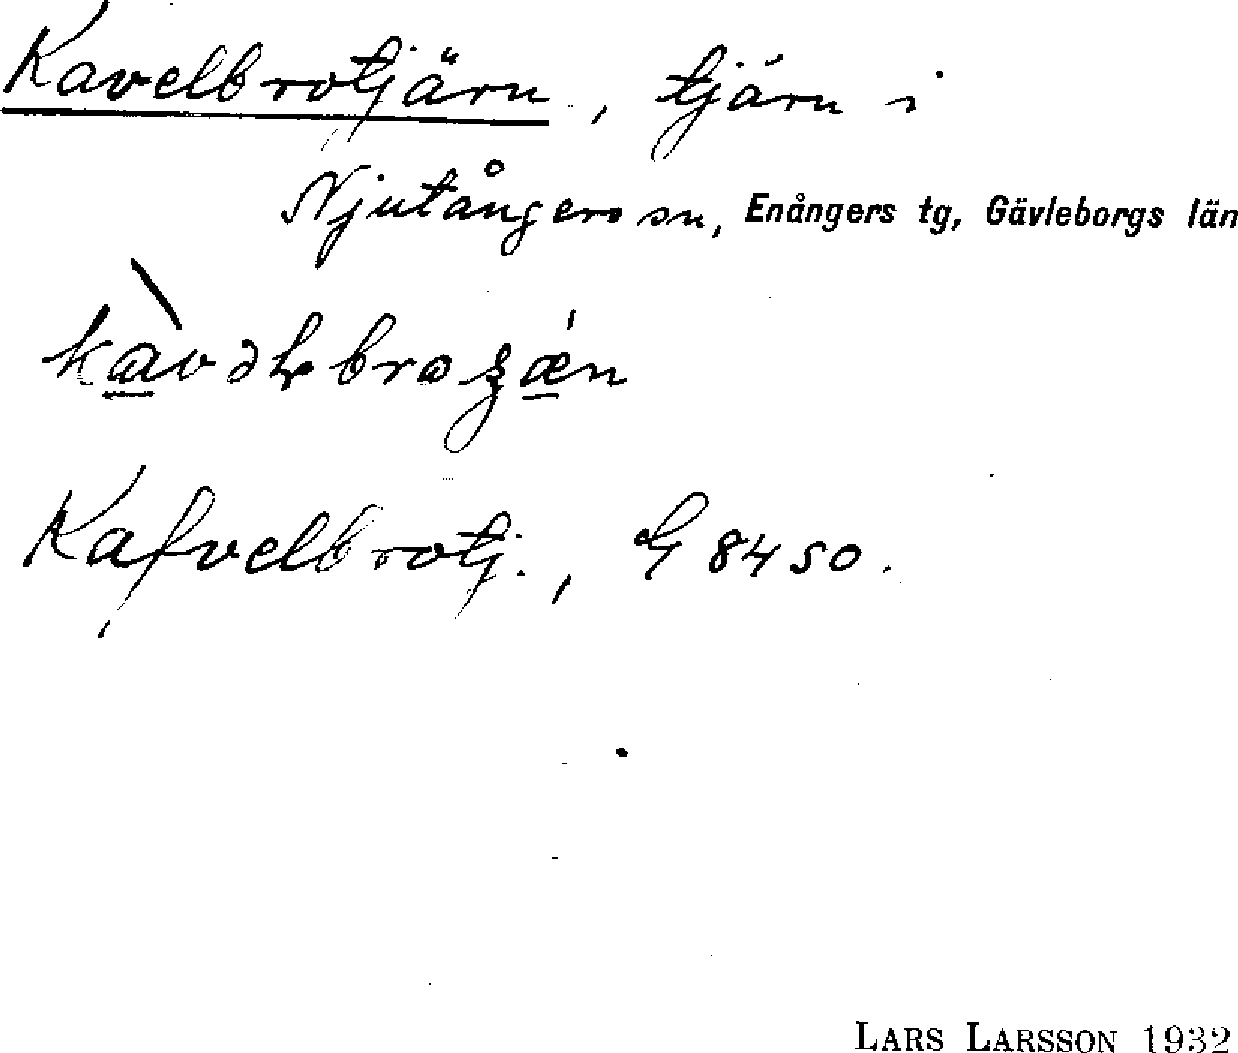 Kavelbrotjärn, tjärn i
Njutångers sn, Enångers tg, Gävleborgs län
Kafvelbrotj., G 8450.
LARS LARSSON 1932